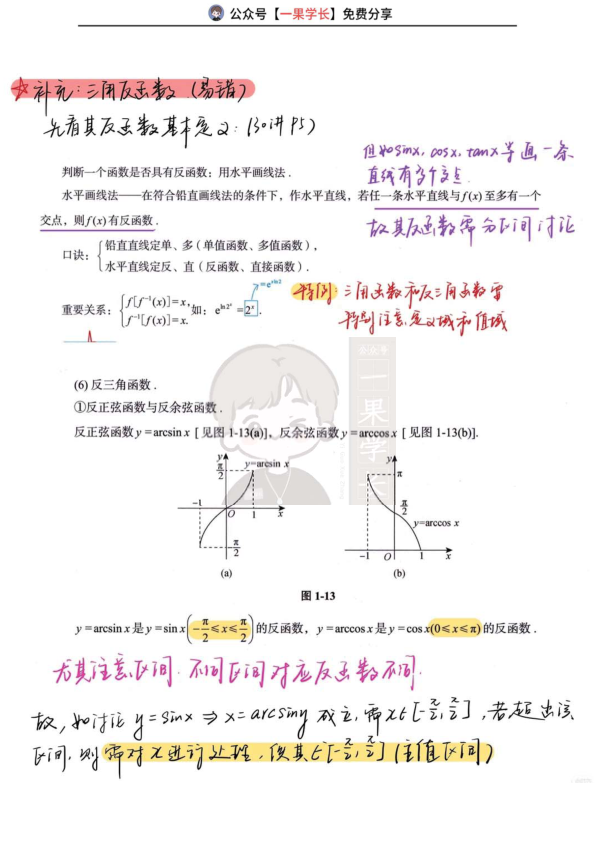 公众号【一果学长】免费分享
☆补充:三角反函数 (易错)
先看其反函数基本定义:(30讲 P5)
但如sinx, cosx, tanx等画一条
直线有多个交点
故其反函数需分区间讨论
判断一个函数是否具有反函数:用水平画线法.
水平画线法——在符合铅直画线法的条件下,作水平直线,若任一条水平直线与f(x)至多有一个
交点,则f(x)有反函数.
口诀:{铅直直线定单、多(单值函数、多值函数),
水平直线定反、直(反函数、直接函数).
=e^{xln2}
特例:三角函数和反三角函数需
特别注意定义域和值域
重要关系:{f[f⁻¹(x)]=x, 如:e^{ln2^x}=2^x.
f⁻¹[f(x)]=x.
公众号
一果学长
(6)反三角函数.
①反正弦函数与反余弦函数.
反正弦函数y=arcsin x [见图1-13(a)],反余弦函数y=arccos x [见图1-13(b)].
y π/2 y=arcsin x
-1 O 1 x
-π/2
(a)
y π
π/2
y=arccos x
-1 O 1 x
(b)
图1-13
y=arcsin x是y=sin x(-π/2≤x≤π/2)的反函数,y=arccos x是y=cos x(0≤x≤π)的反函数.
尤其注意区间.不同区间对应反函数不同.
故,如讨论 y=sinx ⇒ x=arcsiny 成立,需x∈[-π/2,π/2],若超出该
区间,则需对x进行处理,使其∈[-π/2,π/2](主值区间)